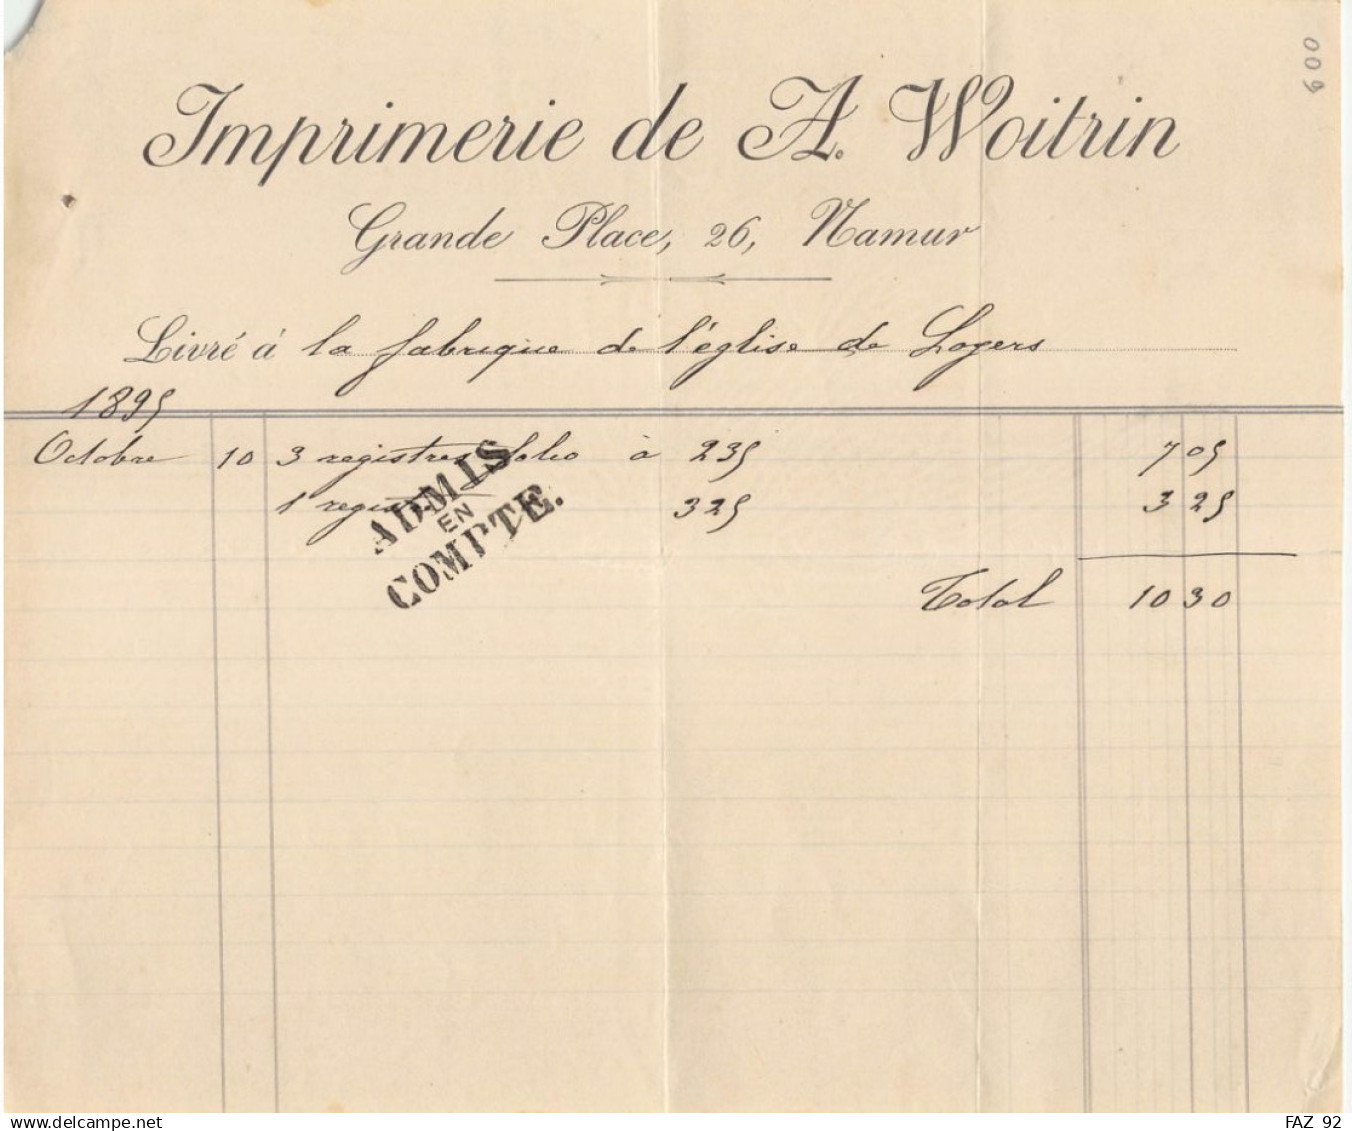 600
Imprimerie de A. Woitrin
Grande Place, 26, Namur
Livré à la fabrique de l'église de Logers
1895
Octobre 10 3 registres folio à 235 7 05
1 registre 325 3 25
ADMIS
EN
COMPTE.
Total 10 30
www.delcampe.net
FAZ 92